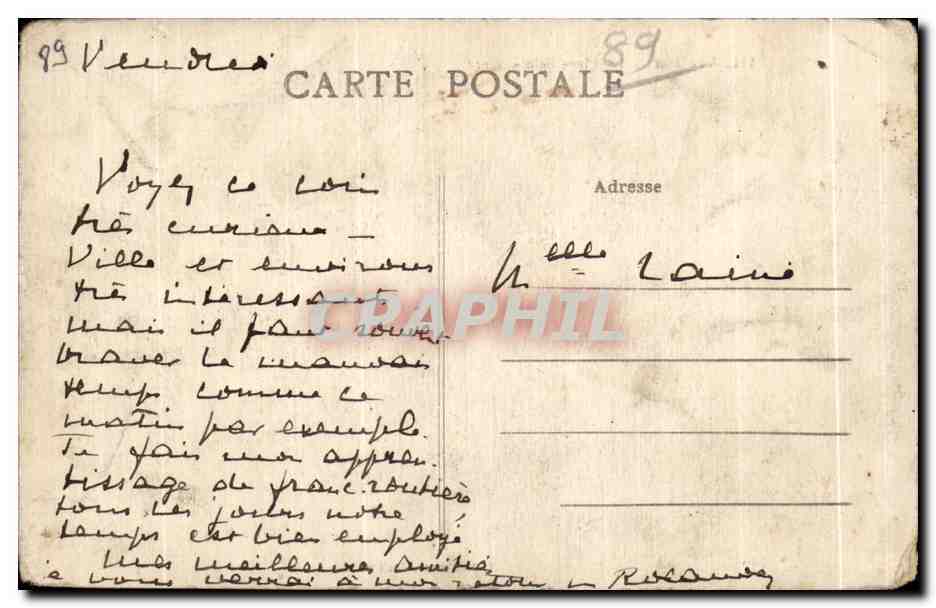 89 Vendredi
89
CARTE POSTALE
Voyez ce coin
très curieux —
Ville et environs
très intéressants
mais il faut souvent
braver le mauvais
temps comme ce
matin par exemple.
Je fais mon appren-
tissage de franc-routière
tous les jours notre
temps est bien employé,
Mes meilleures amitiés
je vous verrai à mon retour
Adresse
Melle Lainé
CRAPHIL